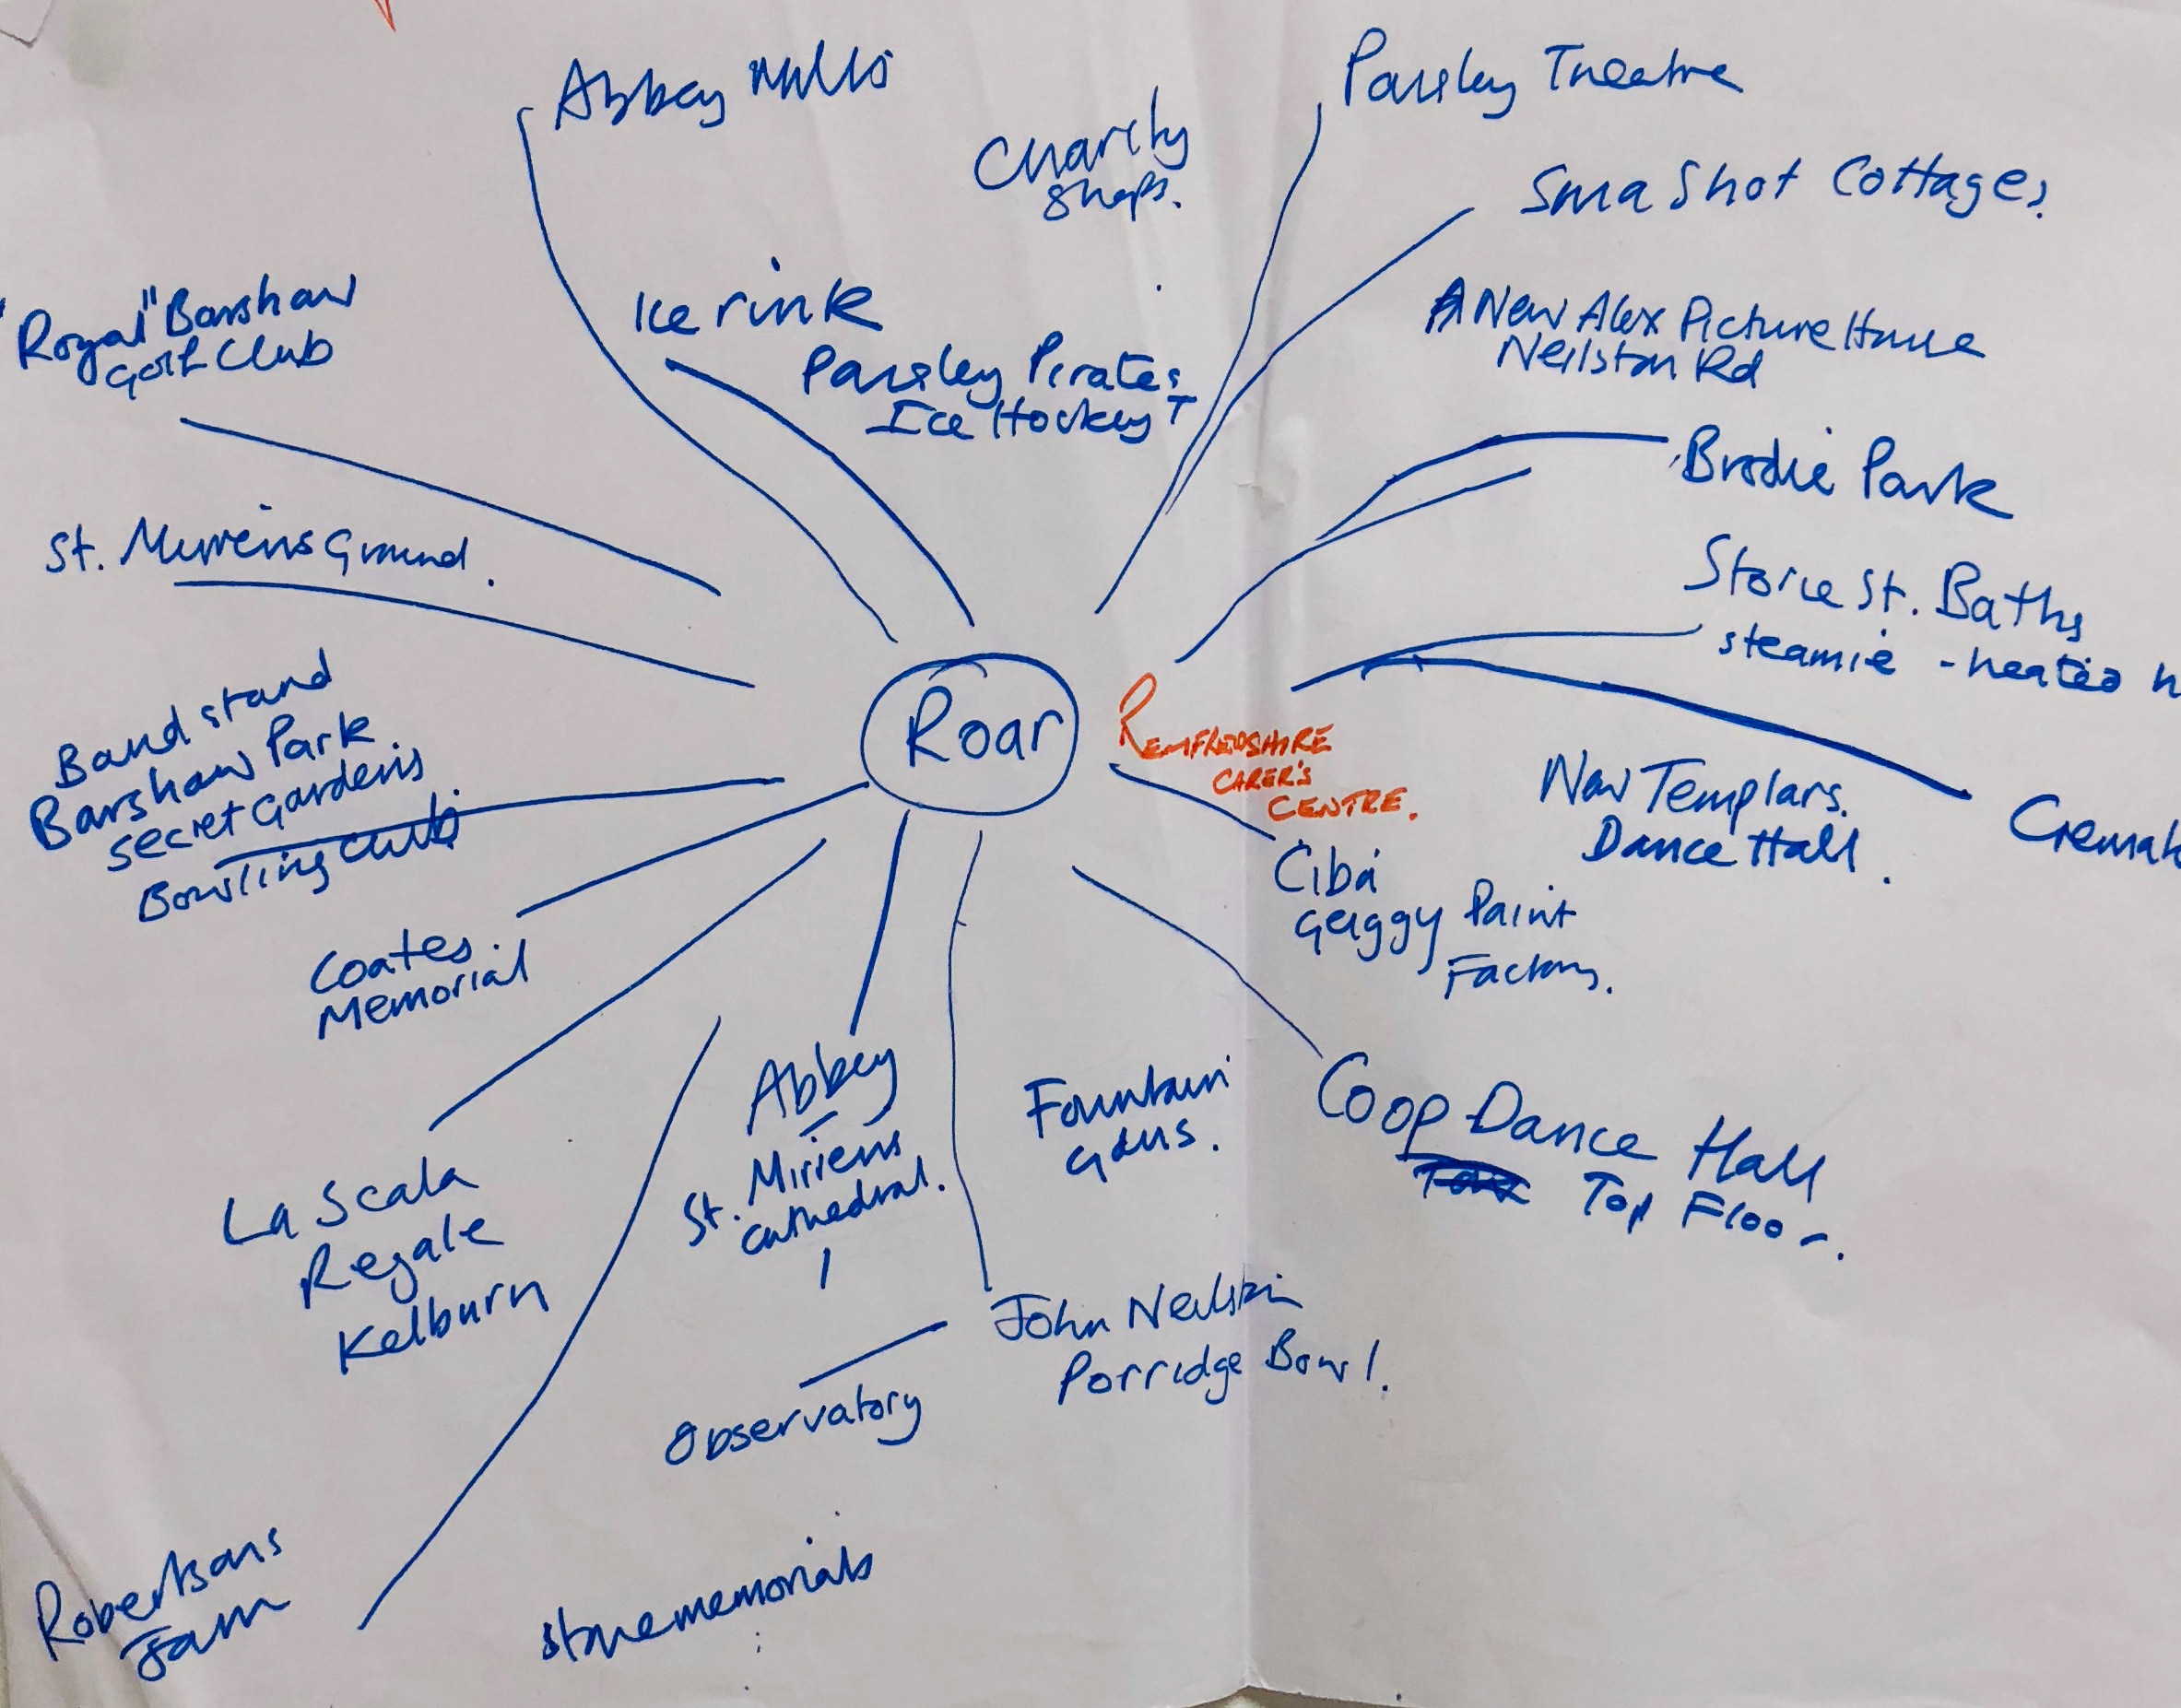 Abbey Mills
Charity
shops.
Paisley Theatre
Sma Shot Cottages.
"Royal" Barshaw
Golf Club
Ice rink
Paisley Pirates
Ice Hockey T
New Alex Picture House
Neilston Rd
Brodie Park
St. Mirrens Ground.
Storie St. Baths
steamie - heated
Band stand
Barshaw Park
secret Gardens
Bowling Club
Roar
RENFREWSHIRE
CARER'S
CENTRE.
New Templars.
Dance Hall.
Cremat
Ciba
Geiggy Paint
Factory.
Coates
Memorial
Abbey
St. Miriens
Cathedral.
Fountain
Gdns.
Coop Dance Hall
Top Floor.
La Scala
Regale
Kelburn
John Neilston
Porridge Bowl.
Observatory
Robertsons
Jam
stonememorials